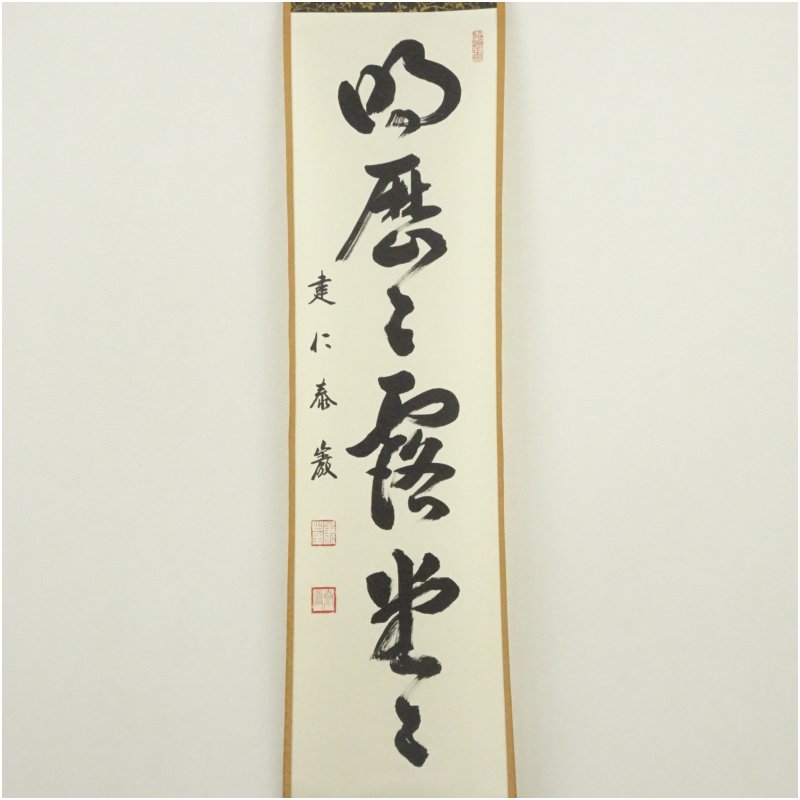 明歴々露堂々
建仁泰巖